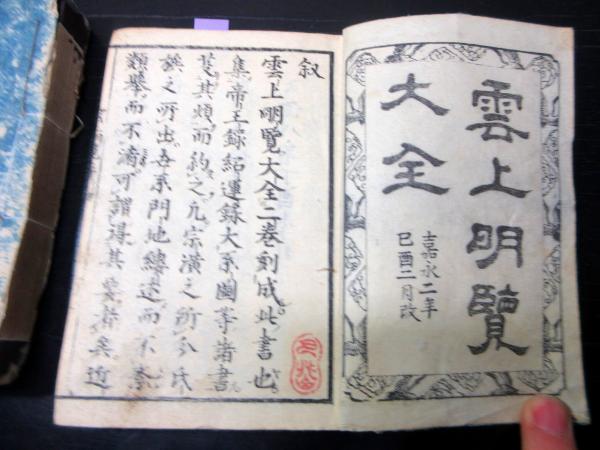 雲上明覽
大全
嘉永二年
巳酉二月改
叙
雲上明覽大全二巻刻成此書也
集帝王錄紹運錄大系圖等諸書
芟其煩而約之凢宗潢之所分氏
族之所出各系門地縷述而不紊
類擧而不濇可謂得其要者矣近